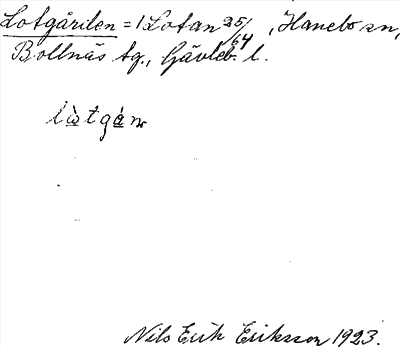 Lotgården = 1 Lotan 25/64, Hanebo sn,
Bollnäs tg., Gävleb. l.
là̱tgá̱n
Nils Erik Eriksson 1923.